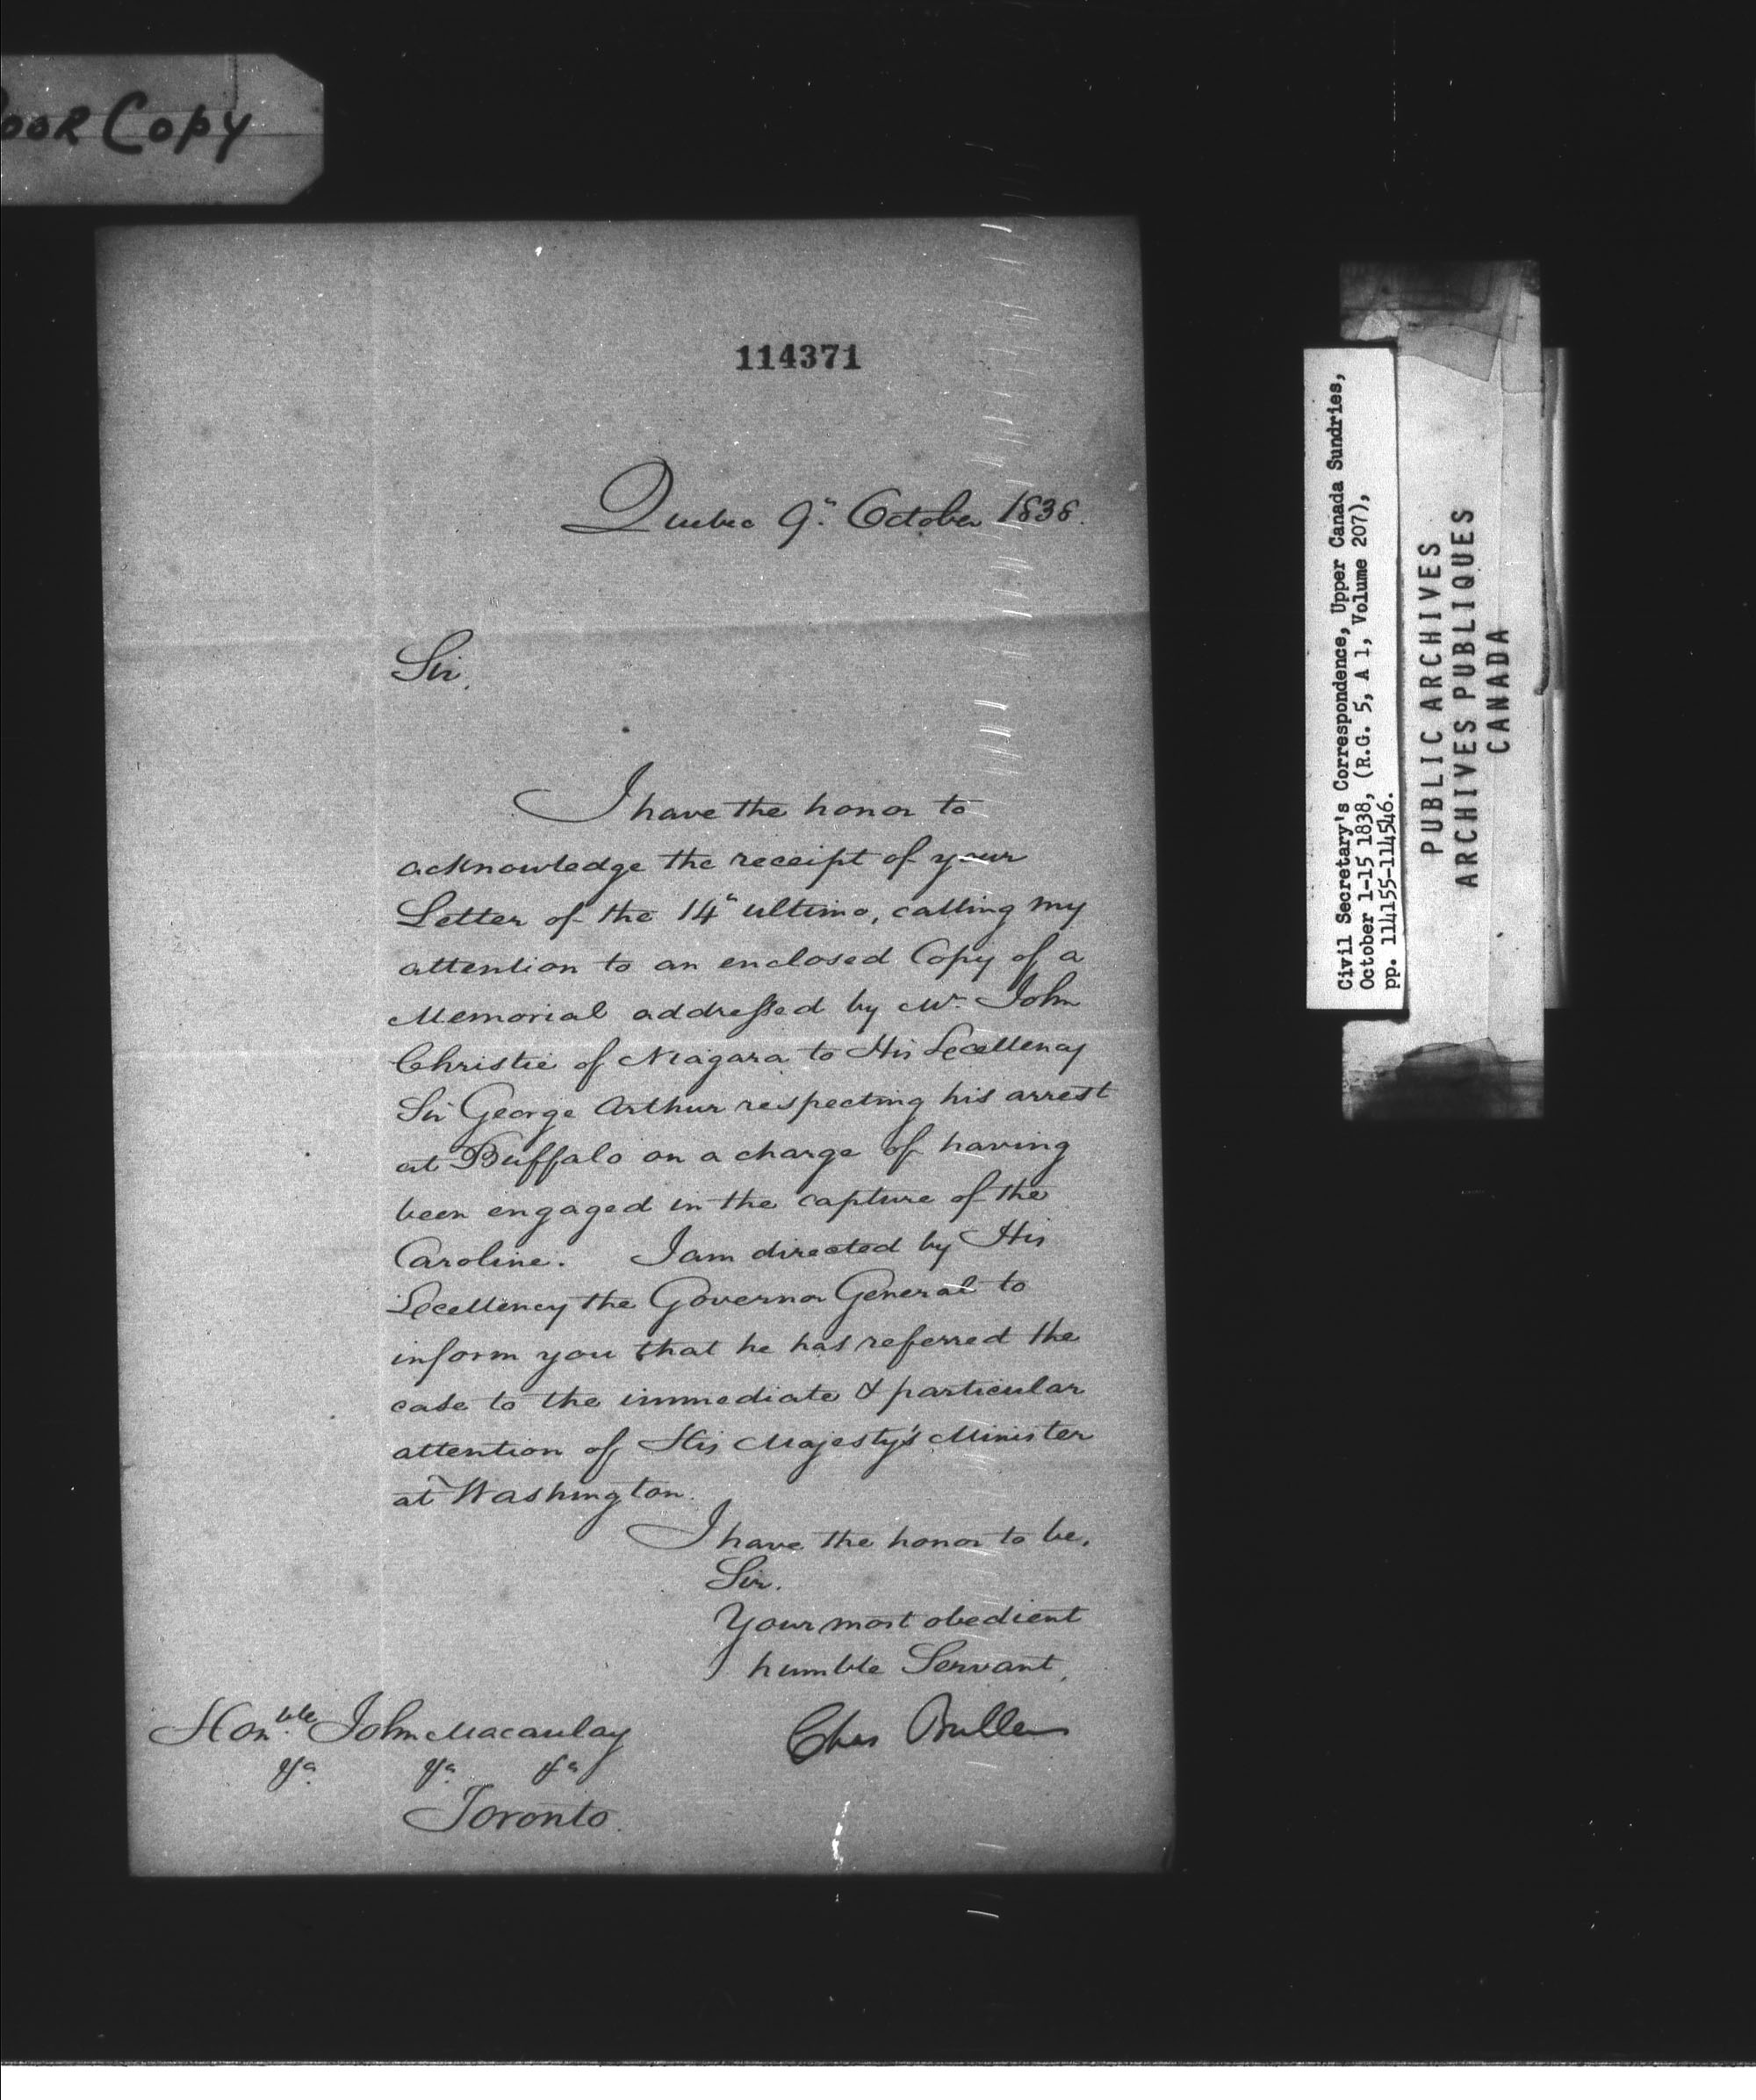 oor Copy
114371
Quebec 9th October 1838.
Sir,
I have the honor to
acknowledge the receipt of your
Letter of the 14th ultimo, calling my
attention to an enclosed Copy of a
Memorial addressed by Mr. John
Christie of Niagara to His Excellency
Sir George Arthur respecting his arrest
at Buffalo on a charge of having
been engaged in the capture of the
Caroline. I am directed by His
Excellency the Governor General to
inform you that he has referred the
case to the immediate & particular
attention of His Majesty's Minister
at Washington.
I have the honor to be,
Sir.
Your most obedient
humble Servant,
Chas Buller
Honble John Macaulay
&c. &c. &c
Toronto.
Civil Secretary's Correspondence, Upper Canada Sundries,
October 1-15 1838, (R.G. 5, A 1, Volume 207),
pp. 114155-114546.
PUBLIC ARCHIVES
ARCHIVES PUBLIQUES
CANADA